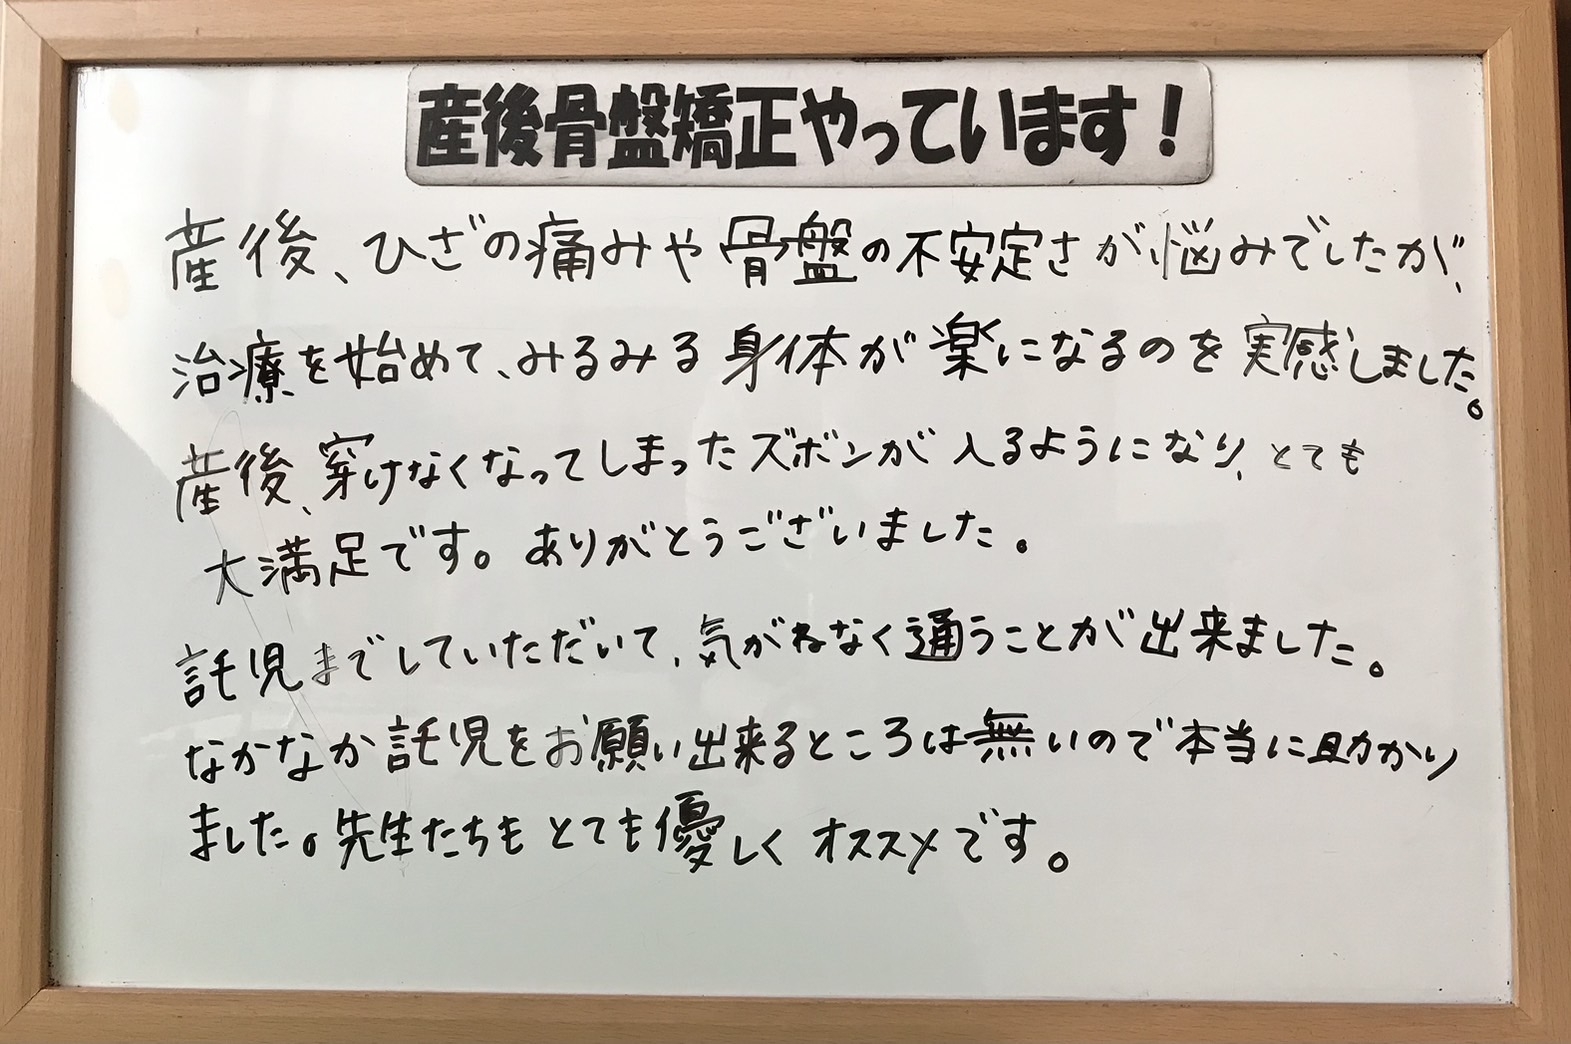 産後骨盤矯正やっています！
産後、ひざの痛みや骨盤の不安定さが悩みでしたが、
治療を始めて、みるみる身体が楽になるのを実感しました。
産後、穿けなくなってしまったズボンが入るようになり、とても
大満足です。ありがとうございました。
託児までしていただいて、気がねなく通うことが出来ました。
なかなか託児をお願い出来るところは無いので本当に助かり
ました。先生たちもとても優しくオススメです。